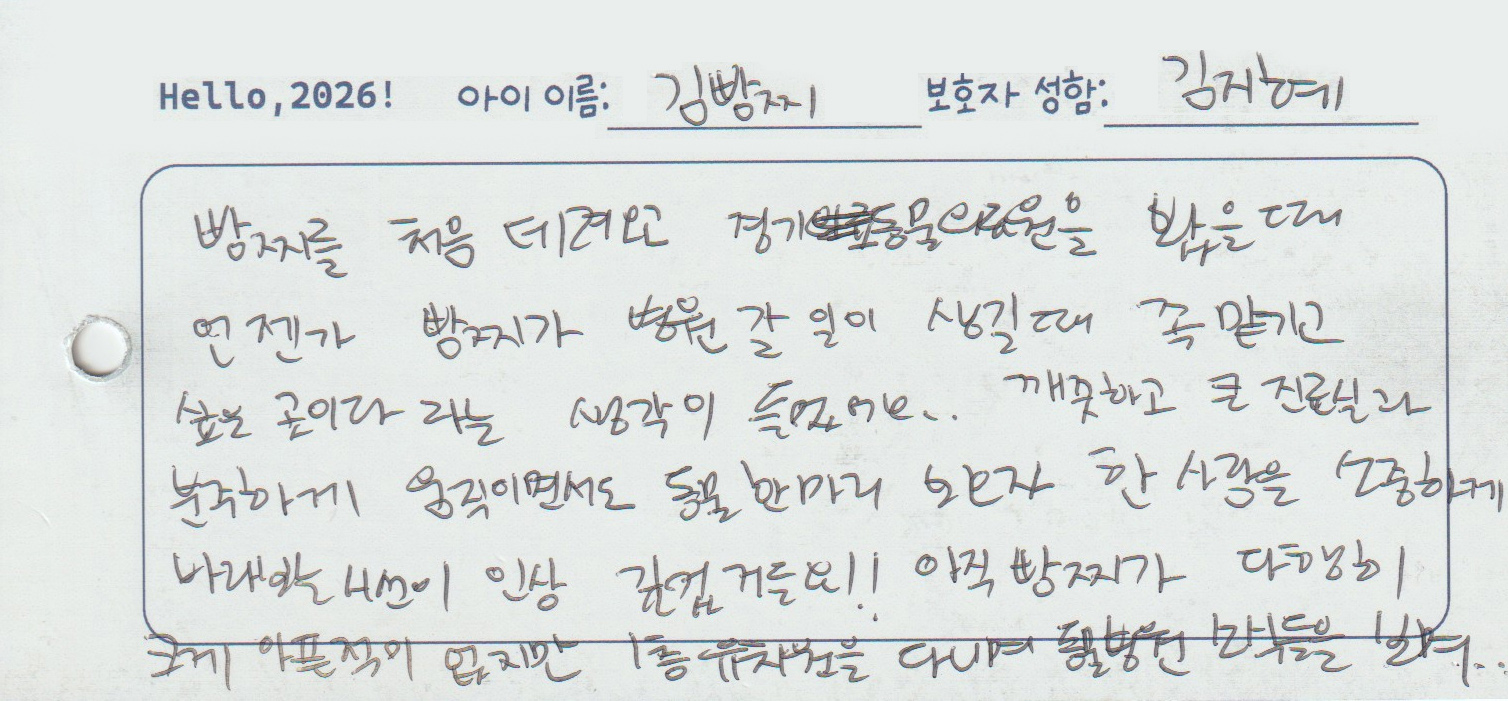 Hello, 2026! 아이 이름: 김빵찌 보호자 성함: 김지혜
빵찌를 처음 데려오고 경기동물의료원을 봤을때
언젠가 빵찌가 병원 갈 일이 생길때 꼭 맡기고
싶은 곳이다 라는 생각이 들었어요.. 깨끗하고 큰 진료실과
분주하게 움직이면서도 동물 한마리 보호자 한 사람을 소중하게
바래봐주는 시선이 인상 깊었거든요!! 아직 빵찌가 다행히
크게 아픈적이 없지만 1층 유치원을 다니며 동물병원 보며..